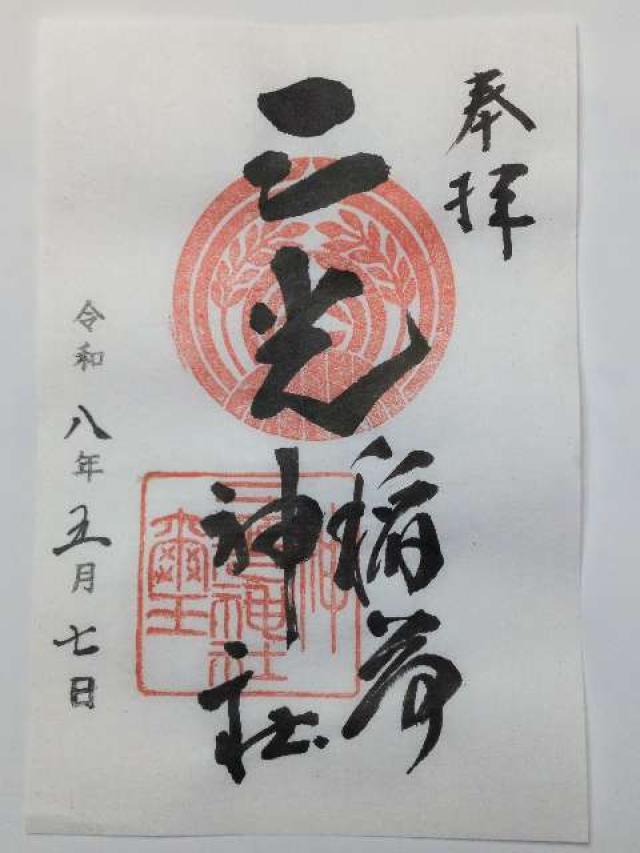 奉拝
三光
稲荷
神社
令和八年五月七日